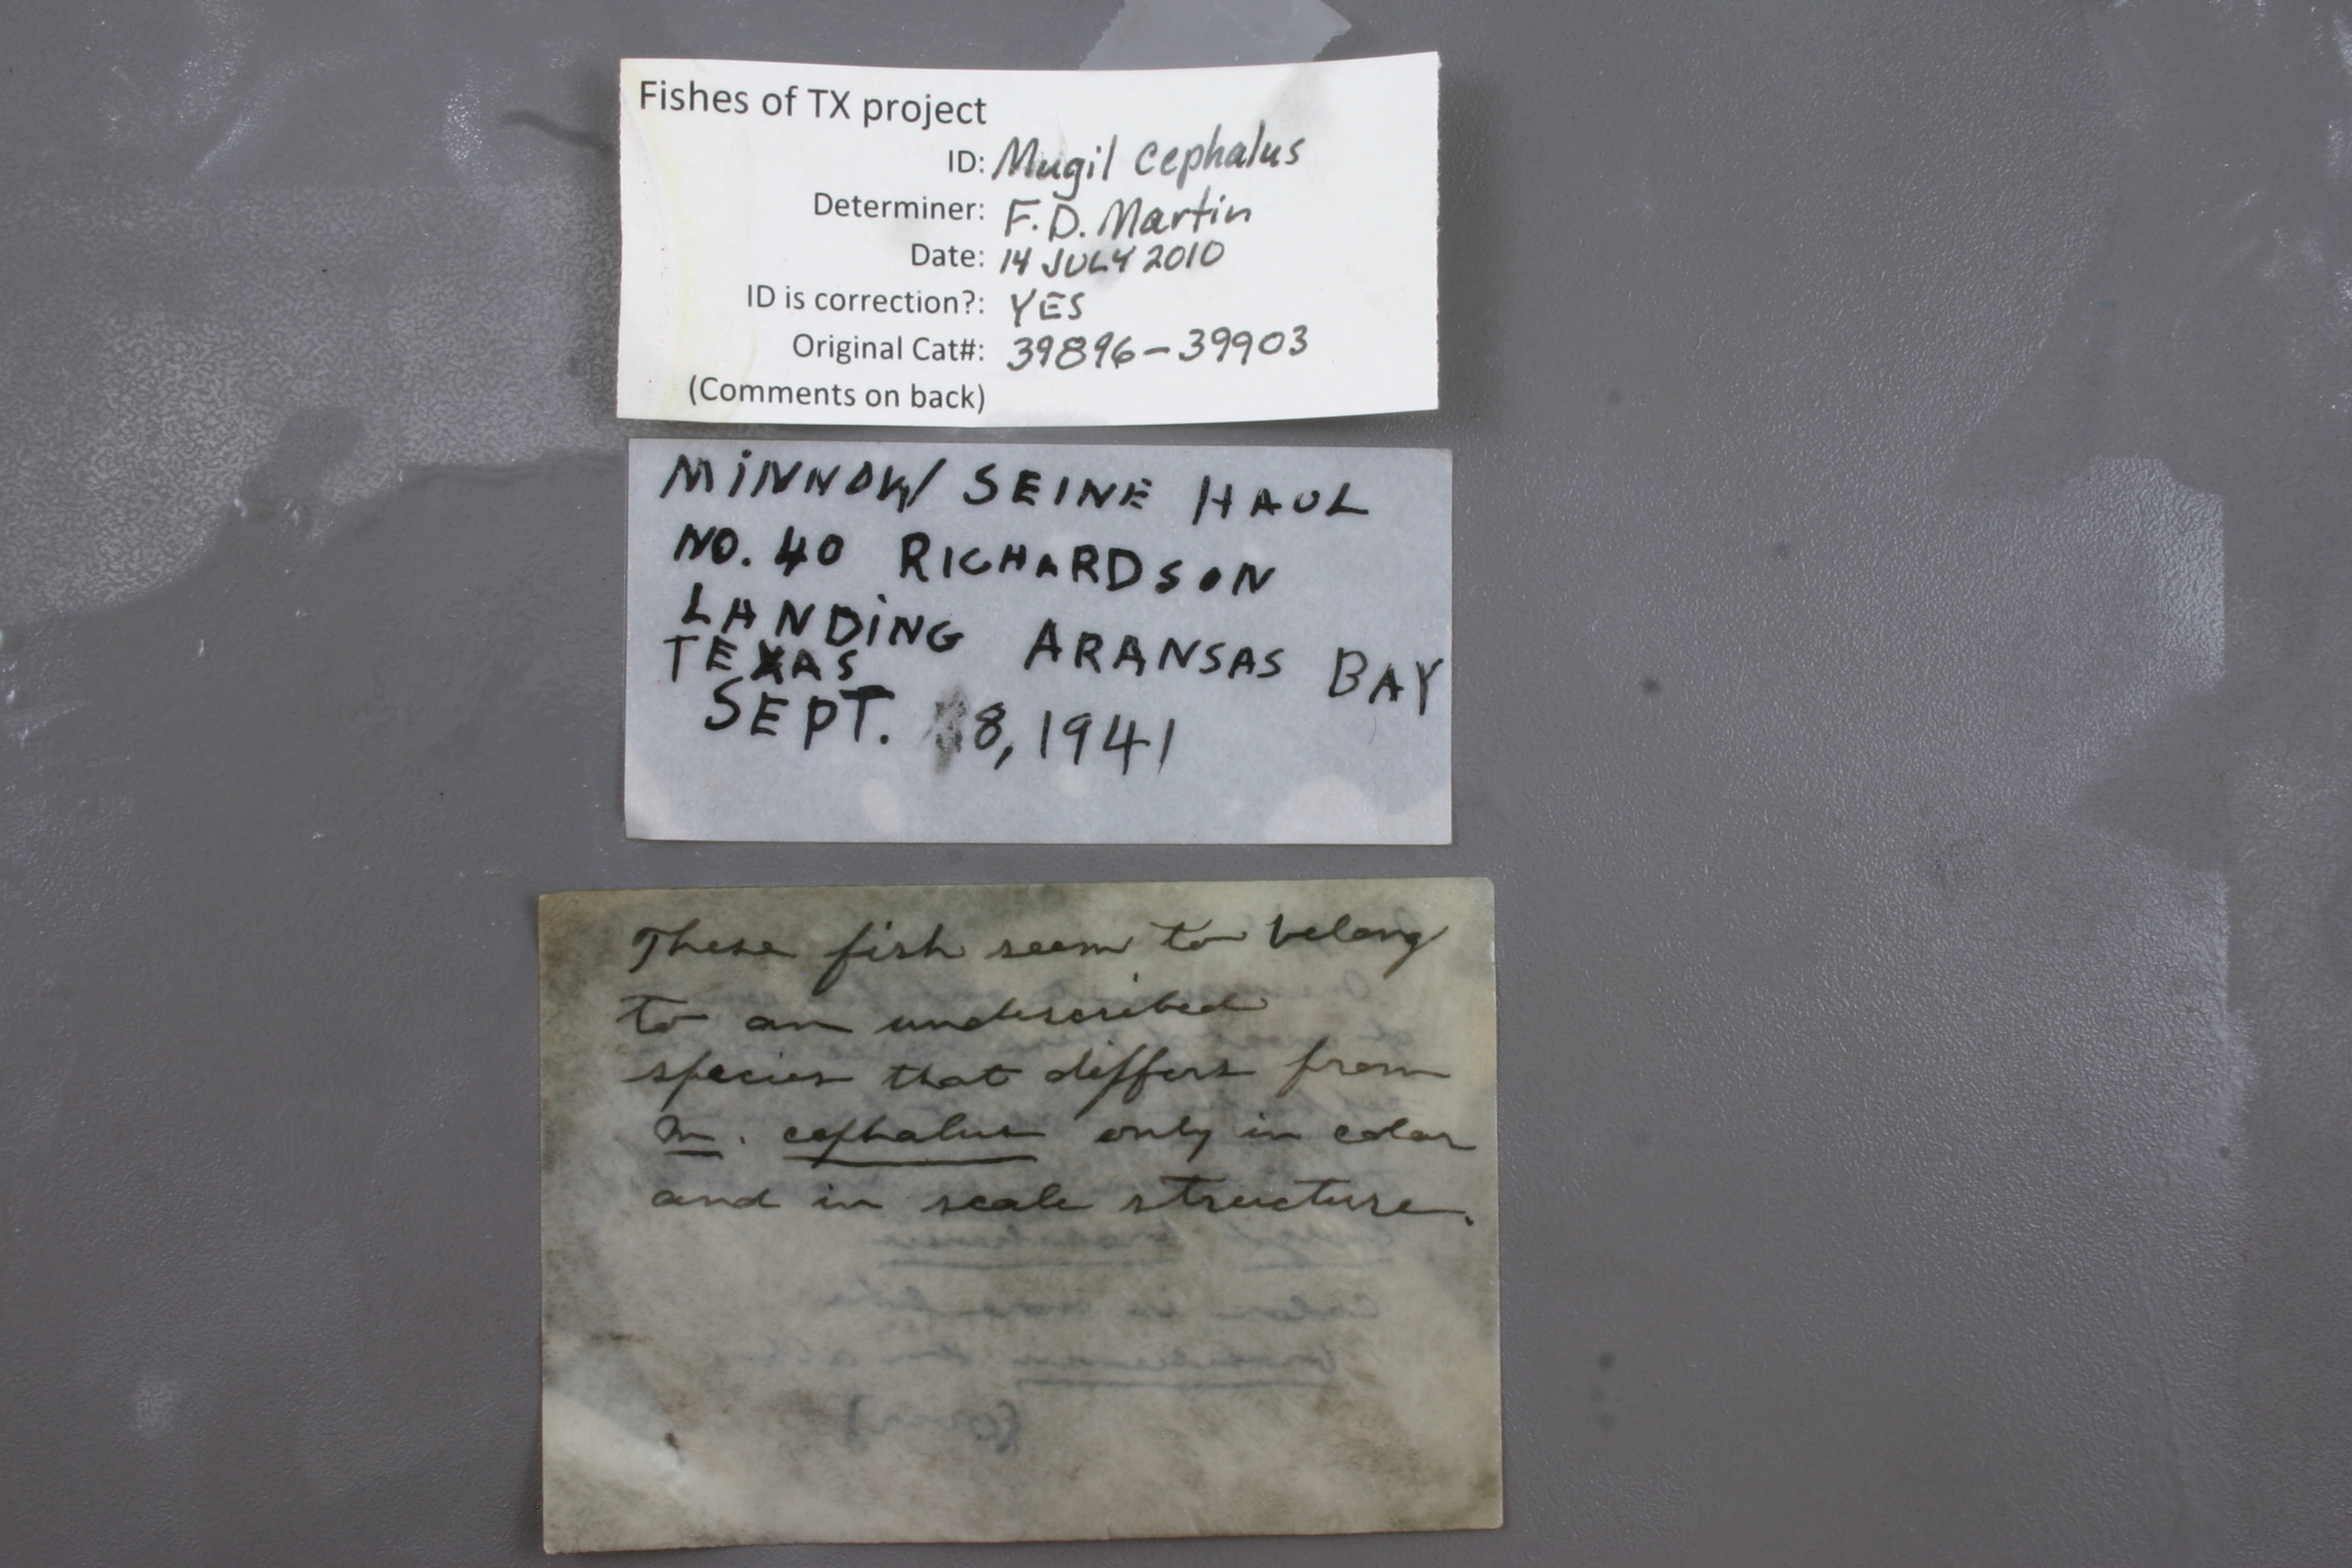 Fishes of TX project
ID: Mugil cephalus
Determiner: F.D. Martin
Date: 14 JULY 2010
ID is correction?: YES
Original Cat#: 39896-39903
(Comments on back)
MINNOW SEINE HAUL
NO. 40 RICHARDSON
LANDING ARANSAS BAY
TEXAS
SEPT. 8, 1941
These fish seem to belong
to an undescribed
species that differs from
M. cephalus only in color
and in scale structure.
(over)